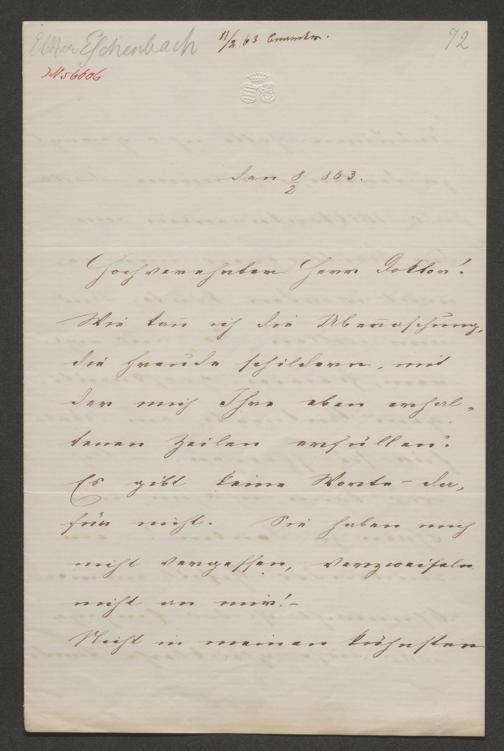 Ebner Eschenbach
11/2 63
72
N 56606
den 8/2 863.
Hochverehrter Herr Doktor!
Wie kan̄ ich die Überraschung,
die Freude schildern, mit
der mich Ihre eben erhal-
tenen Zeilen erfüllen?
Es gibt keine Worte – da-
für nicht. Sie haben mich
nicht vergessen, verzweifeln
nicht an mir! –
Nicht in meinen kühnsten